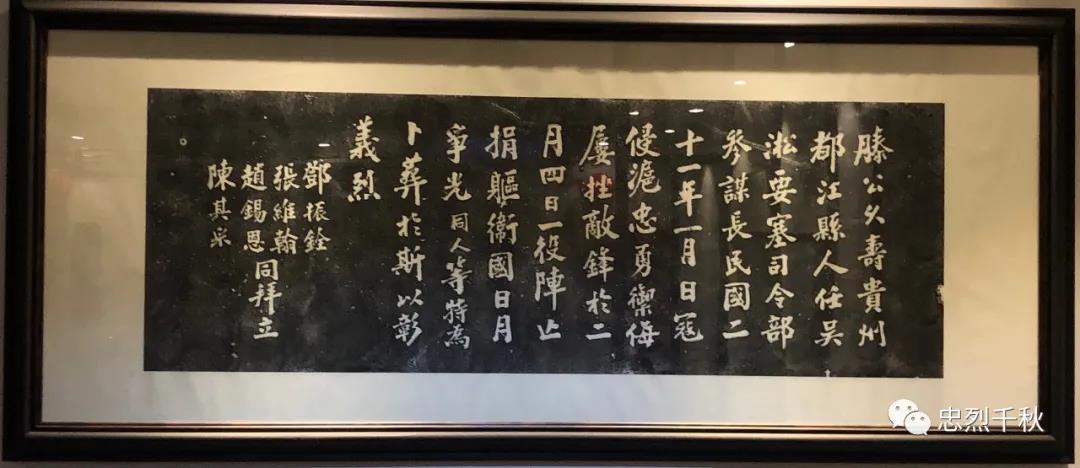 滕公久壽貴州
都江縣人任吴
淞要塞司令部
參謀長民國二
十一年一月日寇
侵滬忠勇禦侮
屡挫敵鋒於二
月四日一役陣亡
捐軀衛國日月
爭光同人等特為
卜葬於斯以彰
義烈
鄧振銓
張維翰
趙錫恩
陳其采
同拜立
忠烈千秋